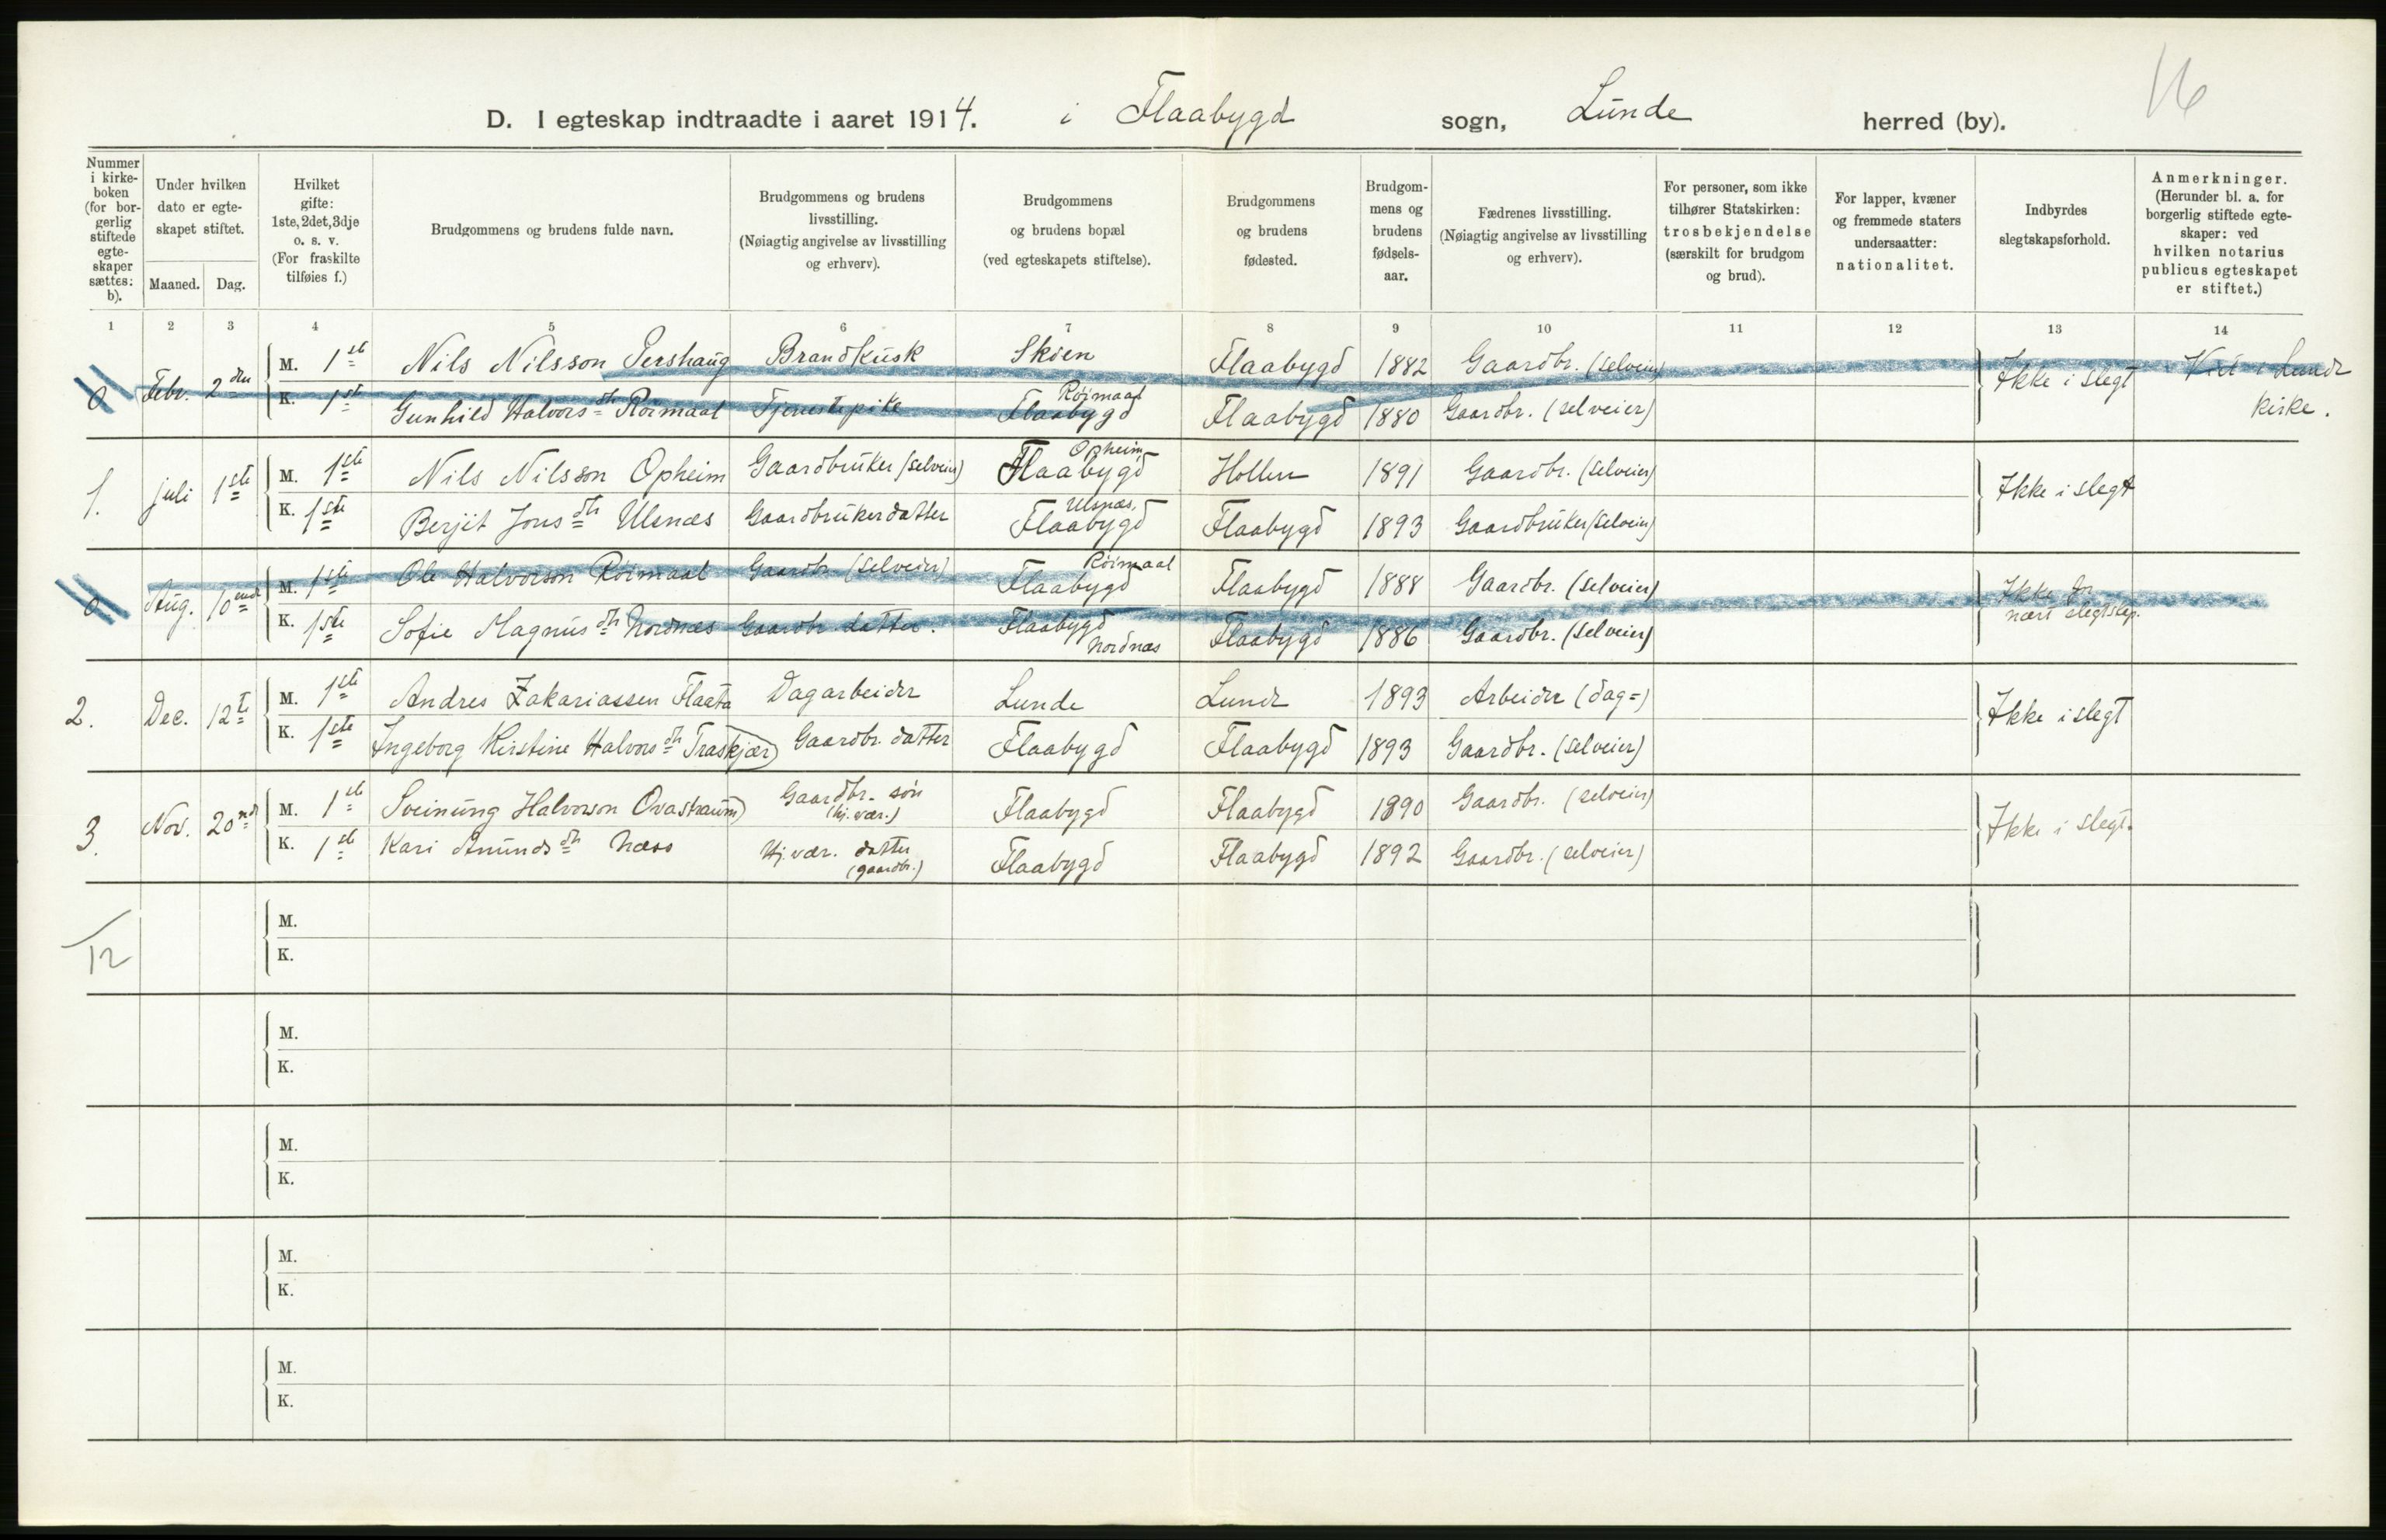 16
D. I egteskap indtraadte i aaret 1914. i Flaabygd sogn, Lunde herred (by).
Nummer i kirkeboken (for borgerlig stiftede egteskaper sættes: b).
Under hvilken dato er egteskapet stiftet.
Maaned. Dag.
Hvilket gifte: 1ste, 2det, 3dje o. s. v. (For fraskilte tilføies f.)
Brudgommens og brudens fulde navn.
Brudgommens og brudens livsstilling. (Nøiagtig angivelse av livsstilling og erhverv).
Brudgommens og brudens bopæl (ved egteskapets stiftelse).
Brudgommens og brudens fødested.
Brudgommens og brudens fødselsaar.
Fædrenes livsstilling. (Nøiagtig angivelse av livsstilling og erhverv).
For personer, som ikke tilhører Statskirken: trosbekjendelse (særskilt for brudgom og brud).
For lapper, kvæner og fremmede staters undersaatter: nationalitet.
Indbyrdes slegtskapsforhold.
Anmerkninger. (Herunder bl. a. for borgerlig stiftede egteskaper: ved hvilken notarius publicus egteskapet er stiftet.)
1 2 3 4 5 6 7 8 9 10 11 12 13 14
0 Febr. 2den M. 1ste Nils Nilsson Pershaug Brandkusk Skien Flaabygd 1882 Gaardbr. (selveier) Ikke i slegt Viet i Lunde kirke.
K. 1ste Gunhild Halvorsdtr Röimaal Tjenestepike Röimaal Flaabygd Flaabygd 1880 Gaardbr. (selveier)
1. juli 1ste M. 1ste Nils Nilsson Opheim Gaardbruker (selveier) Opheim, Flaabygd Hollen 1891 Gaardbr. (selveier) Ikke i slegt
K. 1ste Berjit Jonsdtr Ulsnæs Gaardbrukerdatter Ulsnæs, Flaabygd Flaabygd 1893 Gaardbruker (selveier)
0 Aug. 10ende M. 1ste Ole Halvorson Röimaal Gaardbr. (selveier) Röimaal Flaabygd Flaabygd 1888 Gaardbr. (selveier) Ikke for nært slegtskap.
K. 1ste Sofie Magnusdtr Nordnæs Gaardbr. datter. Flaabygd Nordnæs Flaabygd 1886 Gaardbr. (selveier)
2. Dec. 12t M. 1ste Andres Zakariassen Flaata Dagarbeider Lunde Lunde 1893 Arbeider (dag=) Ikke i slegt
K. 1ste Ingeborg Kirstine Halvorsdtr Traskjær Gaardbr. datter Flaabygd Flaabygd 1893 Gaardbr. (selveier)
3. Nov. 20nd M. 1ste Sveinung Halvorson Ovastraum Gaardbr. søn (hj. vær.) Flaabygd Flaabygd 1890 Gaardbr. (selveier) Ikke i slegt.
K. 1ste Kari Anundsdtr Næss Hj. vær. datter (gaardbr.) Flaabygd Flaabygd 1892 Gaardbr. (selveier)
M.
K.
12
M.
K.
M.
K.
M.
K.
M.
K.